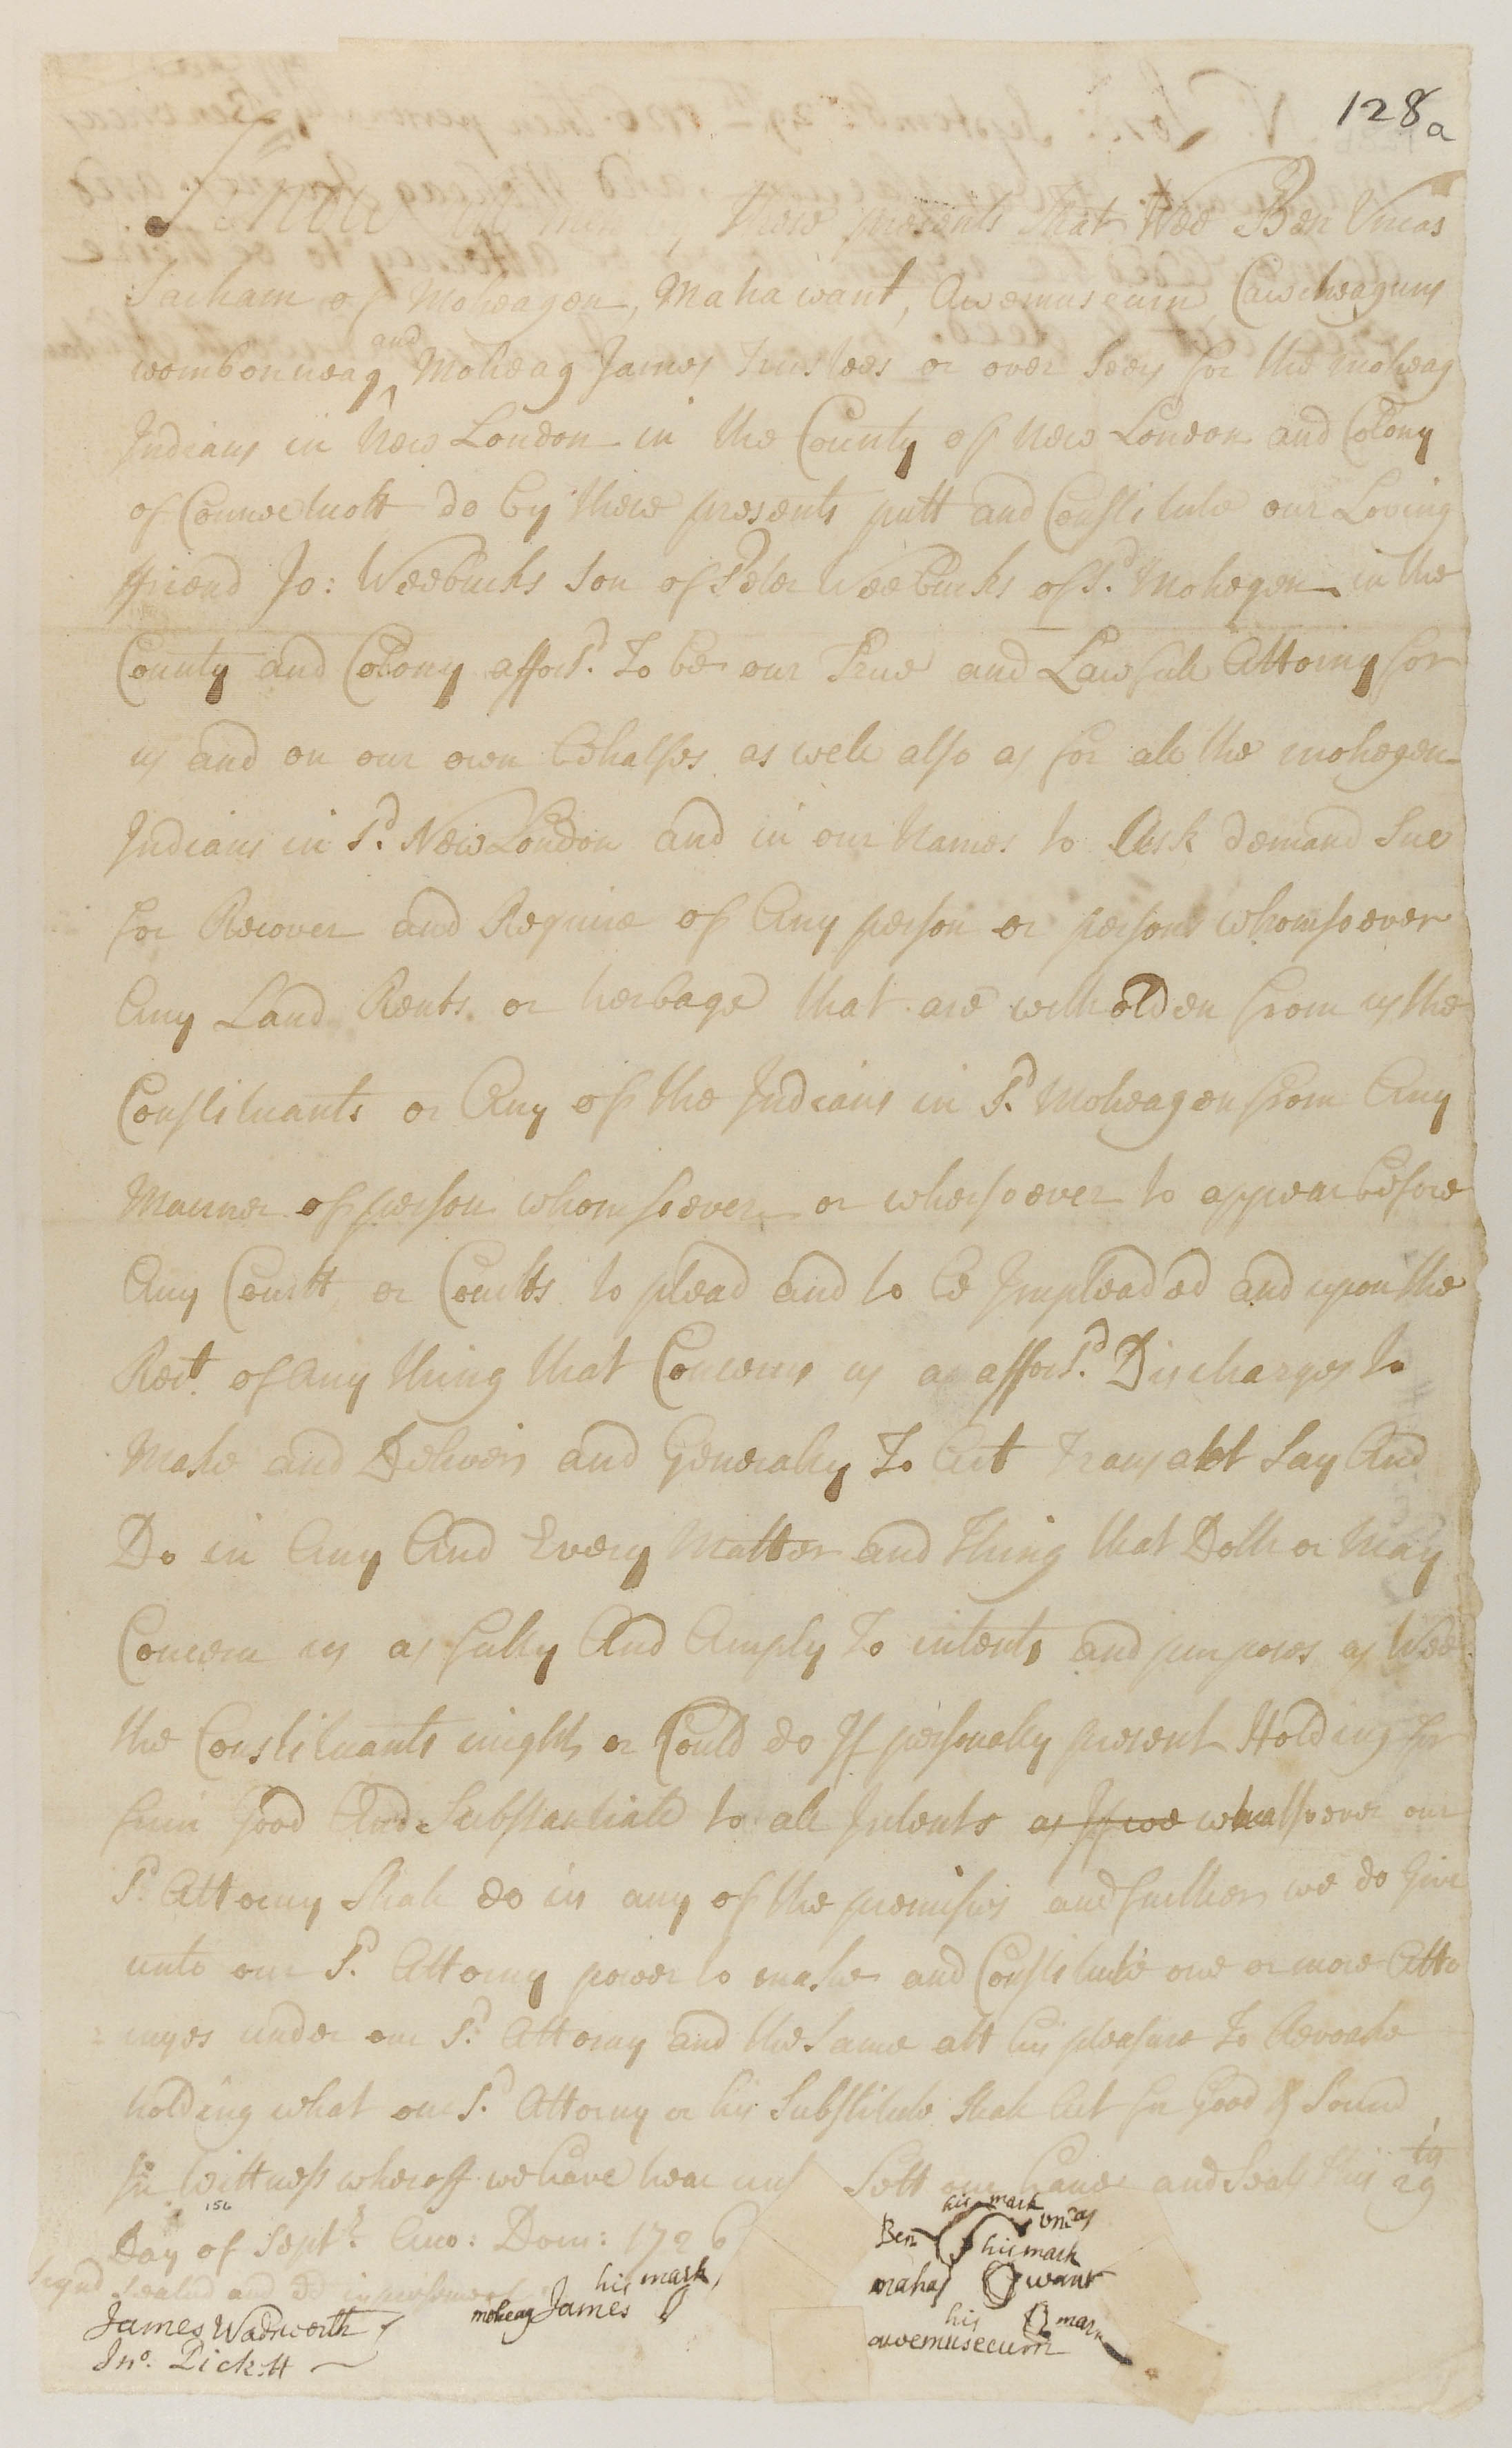 128a
Know all men by these presents that Wee Ben Uncas
Sacham of Moheagen, Mahawant, Awemuseum, Cawcheaguns
wombonneag and Moheag James Trustees or over Seers for the moheag
Indians in New London in the County of New London and Colony
of Connectecutt do by these presents putt and Constitute our Loving
ffriend Jo: Weebucks Son of Peter Weebucks of sd. Mohegen in the
County and Colony afforsd. To be our True and Lawfull Attorny for
us and on our own behalfes as well also as for all the mohegen
Indians in sd. New London and in our Names to Ask demand Sue
for Recover and Require of Any person or persons whomsoever
Any Land Rents or herbage that are witholden from us the
Constituants or Any of the Indians in sd. Moheagen from Any
Manner of person whomsoever or whersoever to appear before
Any Courtt or Courtts to plead and to be Impleaded and upon the
Rect. of any thing that Concerns us as afforsd. Discharges to
Make and Deliver and Generally To Act Transackt Say And
Do in Any And Every Matter and Thing that Doth or May
Concern us as fully And Amply To intents and purposes as Wee
the Constituants might or Could do If personally present Holding for
firm Good And Substantiall to all Intents as If we whatsoever our
sd. Attorny Shall do in any of the premises and further we do Give
unto our sd. Attorny power to make and Constitute one or more Atto
rnyes under our sd. Attorny and the Same att his pleasure To Revoake
holding what our sd. Attorny or his Substitute Shall Act for Good & Sound
In Wittness whereoff we have hear unto Sett our hands and Seals this 29th
Day of Septr. Ano: Dom: 1726
Signd Sealed and dd in presence of
James Wadsworth
Jno. Pickett
his mark
moheag James
his mark
Ben uncas
his mark
mahawant
his mark
awemusecum